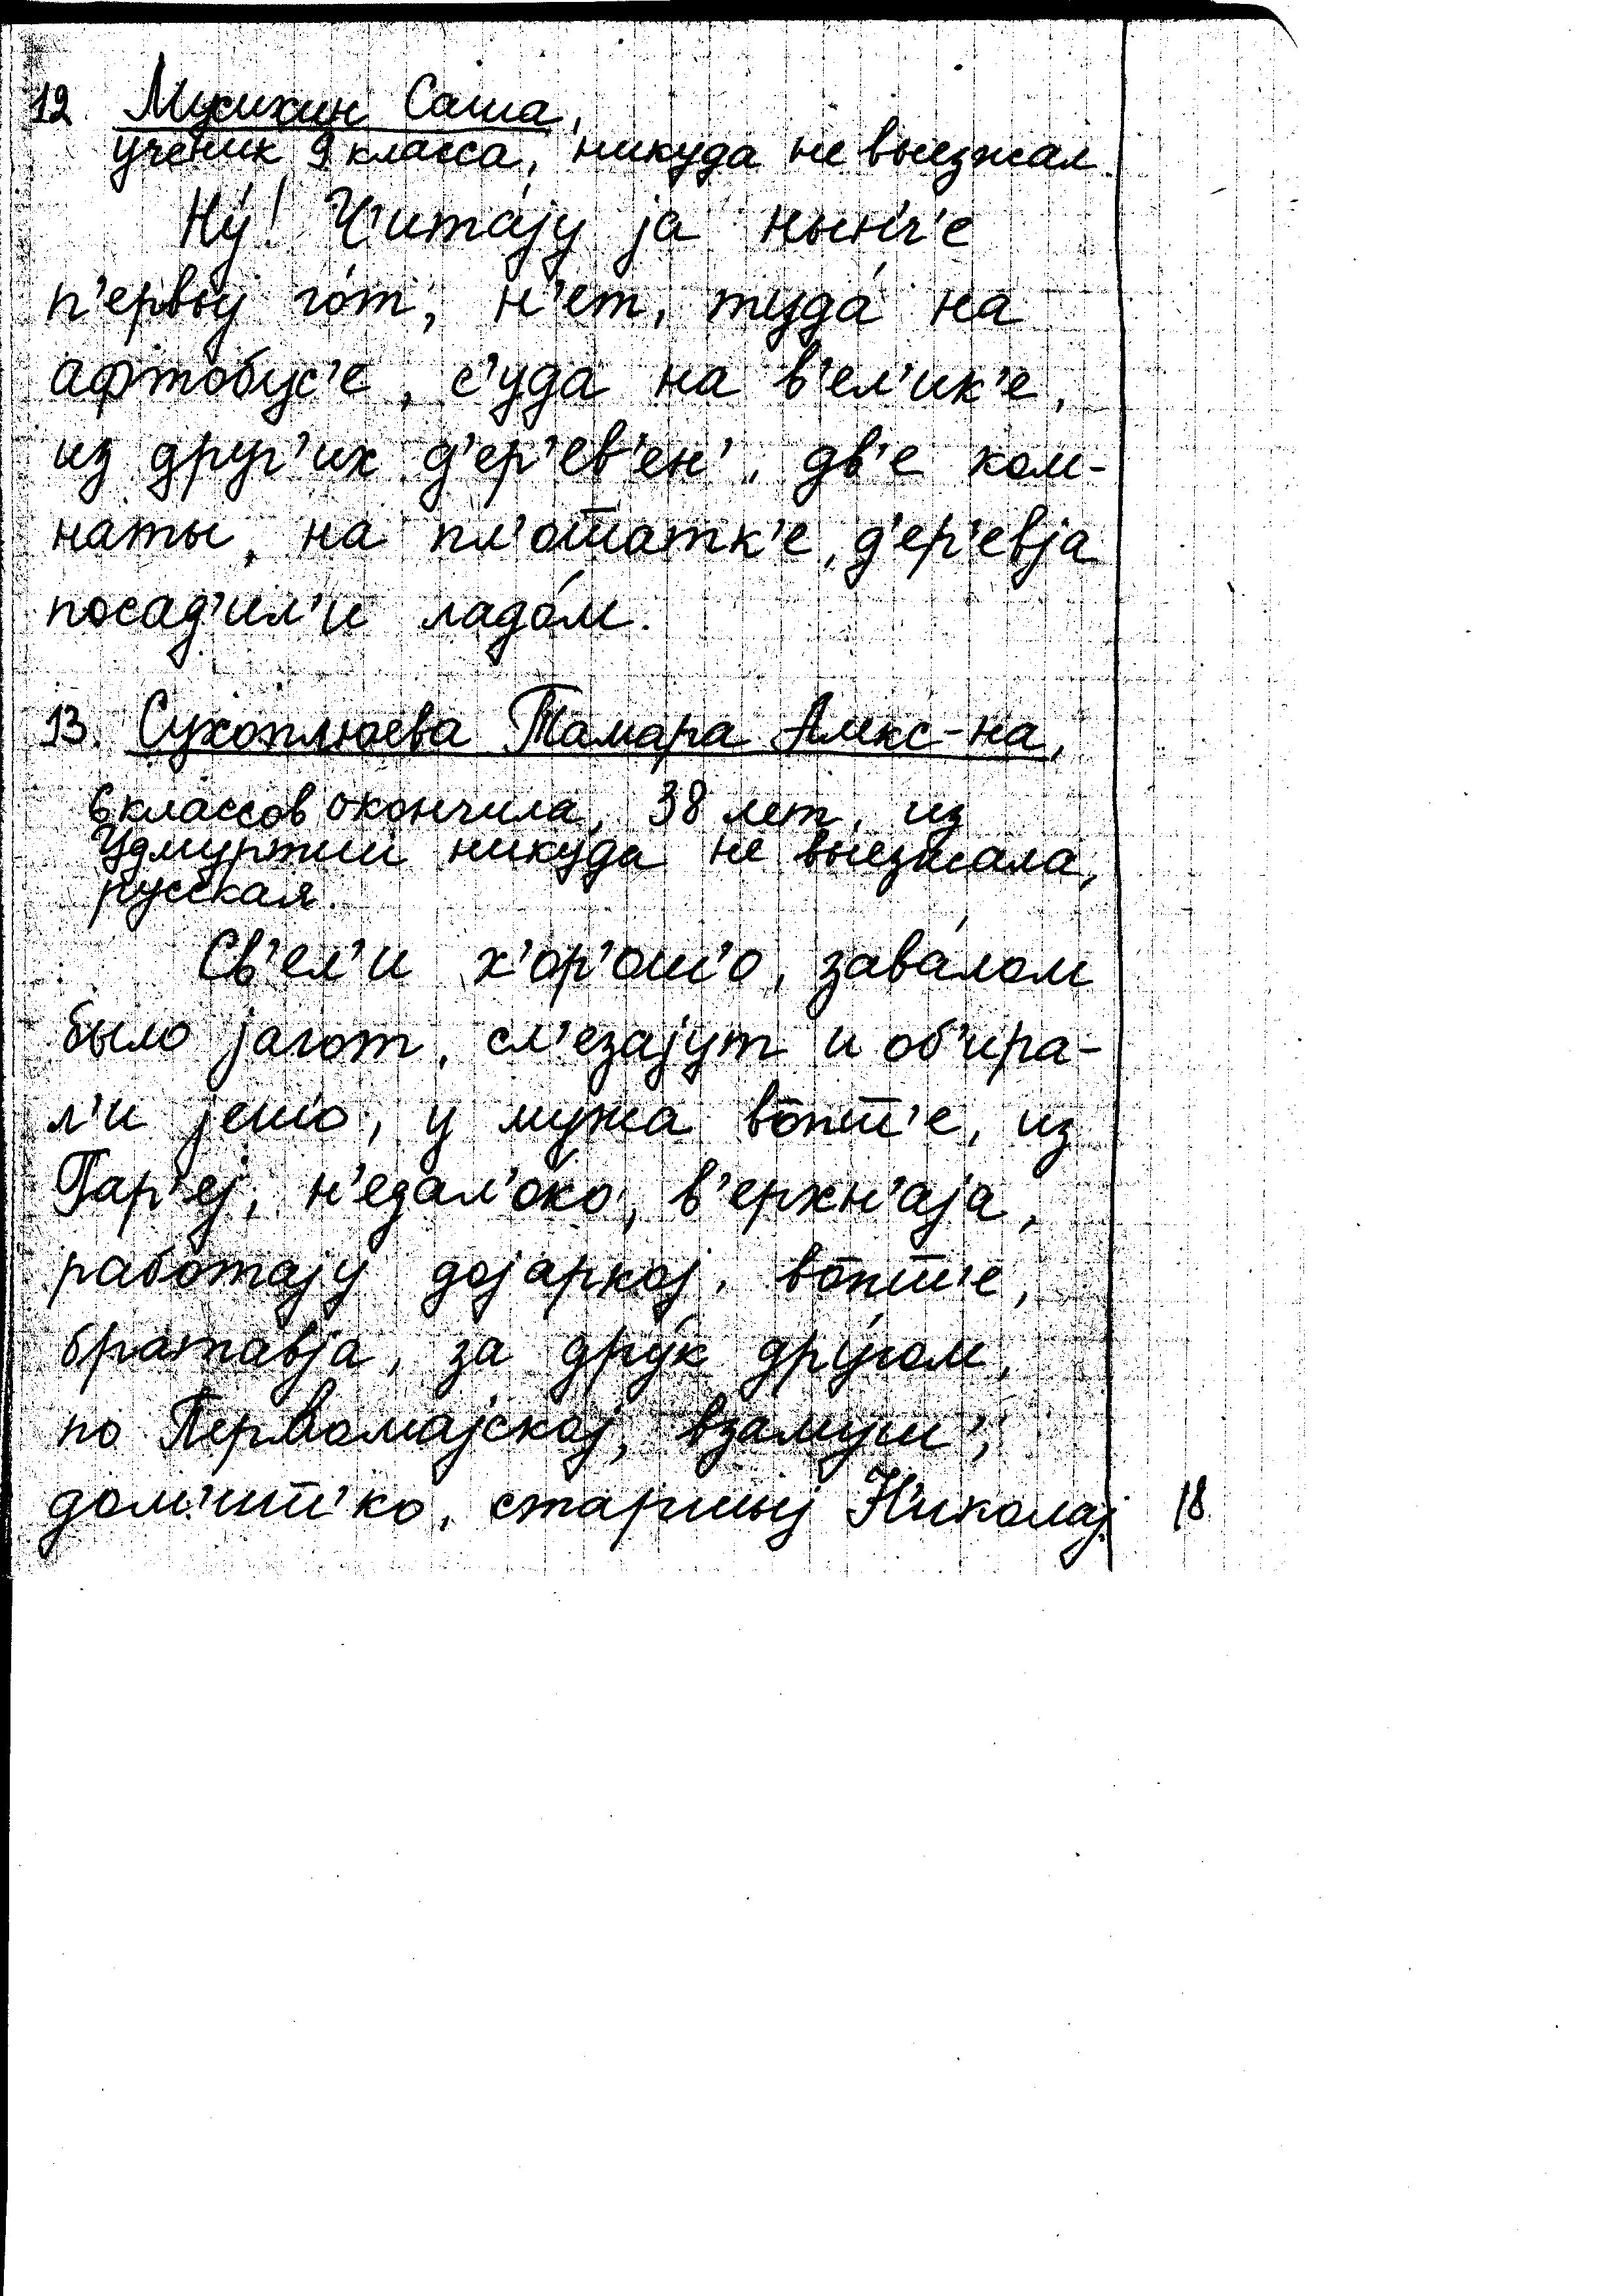 12. Мусихин Саша,
ученик 9 класса, никуда не выезжал.
Ну́! Ч'ита́јy ја нын'ч'е
п'ервыј го́т, н'ет, туда́ на
афтобус'е, с'уда на в'ел'ик'е,
из друг'их д'ер'ев'ен', дв'е ком-
наты, на пл'ош̅атк'е, д'ер'евја
посад'ил'и ладо́м.
13. Сухоплюева Тамара Алекс-на,
6 классов окончила, 38 лет, из
Удмуртии никуда не выезжала,
русская.
Св'ел'и х'ор'ош'о, зава́лом
было јагот, сл'езајут и об'ира-
л'и јешо, у мужа вопш'е, из
Гар'еј, н'едал'око, в'ерхн'аја,
работају дојаркој, вопш'е,
братавја, за дру́к дру́гом,
по Первомајској, взамуш',
дом'иш'ко, старшыј Н'иколај
18